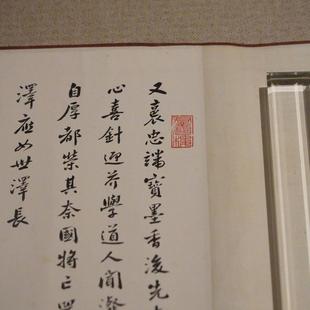 又裹忠端寶墨香後先
心喜針迎芥學道人聞
自厚都榮其奈國將亡
澤應如世澤長